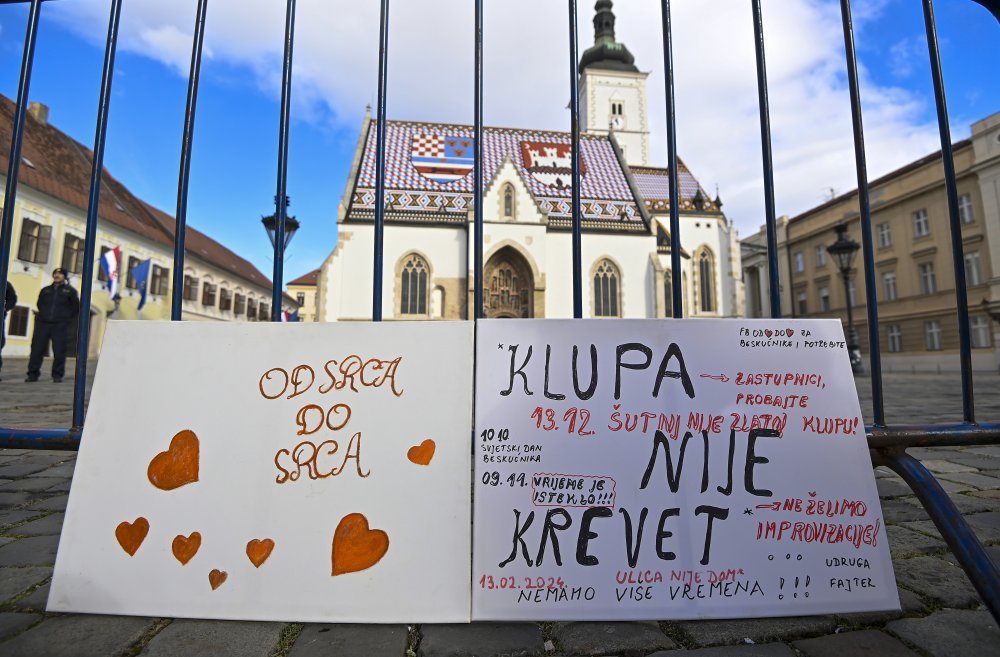 OD SRCA
DO
SRCA
FB OD♥DO♥ ZA
BESKUĆNIKE I POTREBITE
*KLUPA
→ ZASTUPNICI,
PROBAJTE
KLUPU!
13.12. ŠUTNJ NIJE ZLATNJ
10 10
SVJETSKI DAN
BESKUĆNIKA
NIJE
09.11. VRIJEME JE
ISTEKLO!!!
KREVET*
→ NE ŽELIMO
IMPROVIZACIJE!
13.02.2024. ULICA NIJE DOM*
NEMAMO VISE VREMENA !!!
UDRUGA
FAJTER